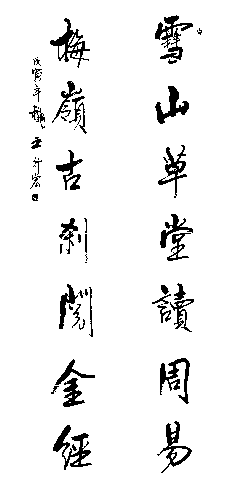 雪山草堂讀周易
梅嶺古刹閱金經
戊寅年秋王